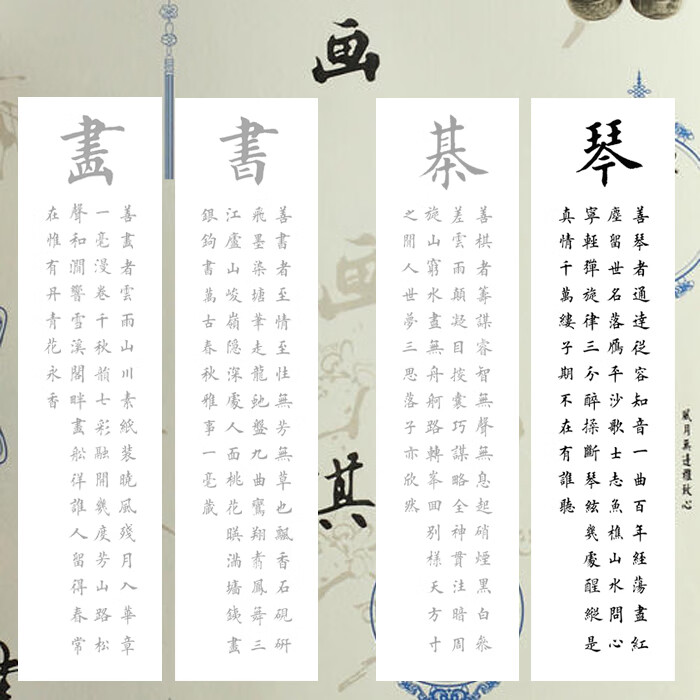 画
琴
善琴者通達從容知音一曲百年經蕩盡紅
塵留世名落鴈平沙歌士志魚樵山水問心
寧輕彈旋律三分醉揉斷琴絃幾處醒縱是
真情千萬縷子期不在有誰聽
棊
善棋者籌謀睿智無聲無息起硝煙黑白參
差雲雨顛凝目按囊巧謀略全神貫注暗周
旋山窮水盡無舟舸路轉峯回別樣天方寸
之間人世夢三思落子亦欣然
書
善書者至情至性無芳無草也飄香石硯研
飛墨染塘筆走龍虵盤九曲鸞翔翥鳳舞三
江廬山峻嶺隱深處人面桃花暎滿墻鐵畫
銀鉤書萬古春秋雅事一毫藏
畫
善畫者雲雨山川素紙裝曉風殘月入華章
一毫漫卷千秋韻七彩融開幾度芳山路松
聲和澗響雪溪閣畔畫船徉誰人留得春常
在惟有丹青花永香
画
風月無邊雅致心